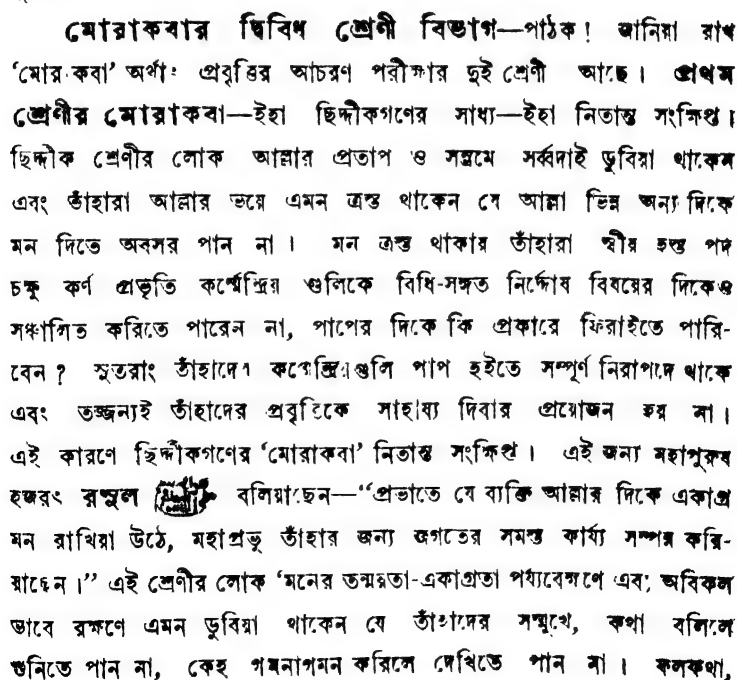 মোরাকবার দ্বিবিধ শ্রেণী বিভাগ—পাঠক! জানিয়া রাখ
‘মোরাকবা’ অর্থাৎ প্রবৃত্তির আচরণ পরীক্ষার দুই শ্রেণী আছে। প্রথম
শ্রেণীর মোরাকবা—ইহা ছিদ্দীকগণের সাধ্য—ইহা নিতান্ত সংক্ষিপ্ত।
ছিদ্দীক শ্রেণীর লোক আল্লার প্রতাপ ও সম্ভ্রমে সর্ব্বদাই ডুবিয়া থাকেন
এবং তাঁহারা আল্লার ভয়ে এমন ত্রস্ত থাকেন যে আল্লা ভিন্ন অন্য দিকে
মন দিতে অবসর পান না। মন ত্রস্ত থাকার তাঁহারা স্বীয় হস্ত পদ
চক্ষু কর্ণ প্রভৃতি কর্ম্মেন্দ্রিয় গুলিকে বিধি-সঙ্গত নির্দ্দোষ বিষয়ের দিকেও
সঞ্চালিত করিতে পারেন না, পাপের দিকে কি প্রকারে ফিরাইতে পারি-
বেন? সুতরাং তাঁহাদের কর্ম্মেন্দ্রিয়গুলি পাপ হইতে সম্পূর্ণ নিরাপদে থাকে
এবং তজ্জন্যই তাঁহাদের প্রবৃত্তিকে সাহায্য দিবার প্রয়োজন হয় না।
এই কারণে ছিদ্দীকগণের ‘মোরাকবা’ নিতান্ত সংক্ষিপ্ত। এই জন্য মহাপুরুষ
হজরৎ রসুল বলিয়াছেন—“প্রভাতে যে ব্যক্তি আল্লার দিকে একাগ্র
মন রাখিয়া উঠে, মহাপ্রভু তাঁহার জন্য জগতের সমস্ত কার্য্য সম্পন্ন করি-
য়াছেন।” এই শ্রেণীর লোক ‘মনের তন্ময়তা-একাগ্রতা পর্য্যবেক্ষণে এবং অবিকল
ভাবে রক্ষণে এমন ডুবিয়া থাকেন যে তাঁহাদের সম্মুখে, কথা বলিলে
শুনিতে পান না, কেহ গমনাগমন করিলে দেখিতে পান না। ফলকথা,